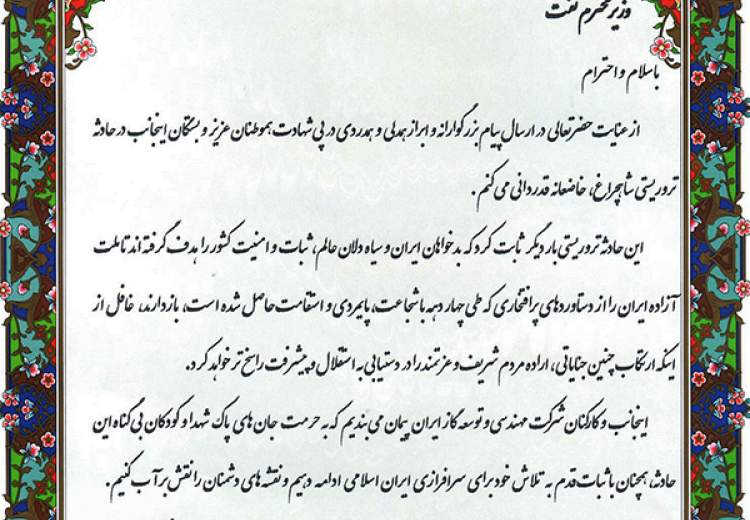 وزیر محترم نفت
با سلام و احترام
از عنایت حضرتعالی در ارسال پیام بزرگوارانه و ابراز همدلی و همدردی در پی شهادت هموطنان عزیز و بستگان اینجانب در حادثه
تروریستی شاهچراغ، خاضعانه قدردانی می کنم .
این حادثه تروریستی بار دیگر ثابت کرد که بدخواهان ایران و سیاه دلان عالم، ثبات و امنیت کشور را هدف گرفته اند تا ملت
آزاده ایران را از دستاوردهای پرافتخاری که طی چهار دهه با شجاعت، پایمردی و استقامت حاصل شده است، بازدارند، غافل از
اینکه ارتکاب چنین جنایاتی، اراده مردم شریف و عزتمند را در دستیابی به استقلال و پیشرفت راسخ تر خواهد کرد.
اینجانب و کارکنان شرکت مهندسی و توسعه گاز ایران پیمان می بندیم که به حرمت جان های پاک شهدا و کودکان بی گناه این
حادثه، همچنان با ثبات قدم به تلاش خود برای سرافرازی ایران اسلامی ادامه دهیم و نقشه های دشمنان را نقش بر آب کنیم .